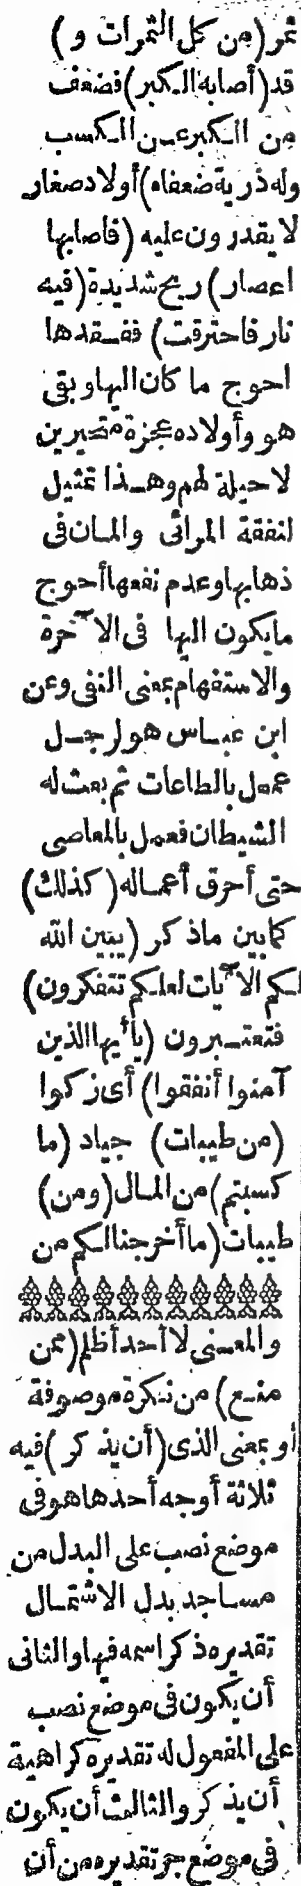 ثمر (من كل الثمرات و)
قد (أصابه الكبر) فضعف
من الكبر عن الكسب
وله ذرية ضعفاء) أولاد صغار
لا يقدرون عليه (فاصابها
اعصار) ريح شديدة (فيه
نار فاحترقت) ففقدها
احوج ما كان اليها وبقى
هو وأولاده عجزة متحيرين
لا حيلة لهم وهذا تمثيل
لنفقة المرائى والمان فى
ذهابها وعدم نفعها أحوج
ما يكون اليها فى الآخرة
والاستفهام بمعنى النفى وعن
ابن عباس هو لرجل
عمل بالطاعات ثم بعث له
الشيطان فعمل بالمعاصى
حتى أحرق أعماله (كذلك)
كما بين ما ذكر (يبين الله
لكم الآيات لعلكم تتفكرون)
فتعتبرون (يا أيها الذين
آمنوا أنفقوا) أى زكوا
(من طيبات) جياد (ما
كسبتم) من المال (ومن)
طيبات (ما أخرجنا لكم من
والمعنى لا أحد أظلم (ممن
منع) من نكرة موصوفة
أو بمعنى الذى (أن يذكر) فيه
ثلاثة أوجه أحدها هو فى
موضع نصب على البدل من
مساجد بدل الاشتمال
تقديره ذكر اسمه فيها والثانى
أن يكون فى موضع نصب
على المفعول له تقديره كراهية
أن يذكر والثالث أن يكون
فى موضع جر تقديره من أن